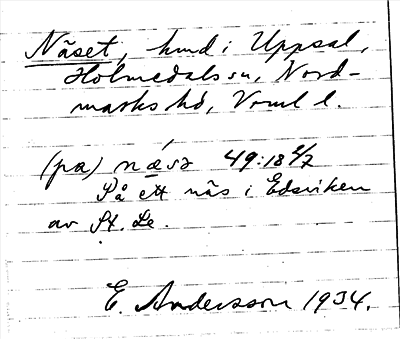 Näset, hmd i Uppsal,
Holmedals sn, Nord-
marks hd, Vrml l.
(pα) næsα 49:18 2/7
På ett näs i Edsviken
av St. Le.
E. Andersson 1934.